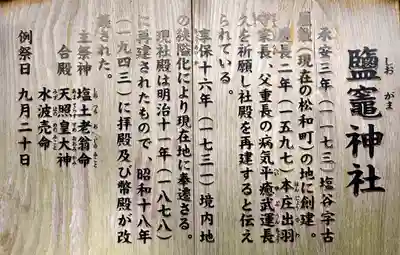 鹽竈神社
しおがま
承安三年(一一七三)塩谷字古
鹽竈(現在の松和町)の地に創建。
慶長二年(一五九七)本庄出羽
守家長、父重長の病気平癒武運長
久を祈願し社殿を再建すると伝え
られている。
享保十六年(一七三一)境内地
の狭隘化により現在地に奉遷さる。
現社殿は明治十一年(一八七八)
に再建されたもので、昭和十八年
(一九四三)に拝殿及び幣殿が改
築された。
主祭神 塩土老翁命
合殿 天照皇大神
水波売命
例祭日 九月二十日